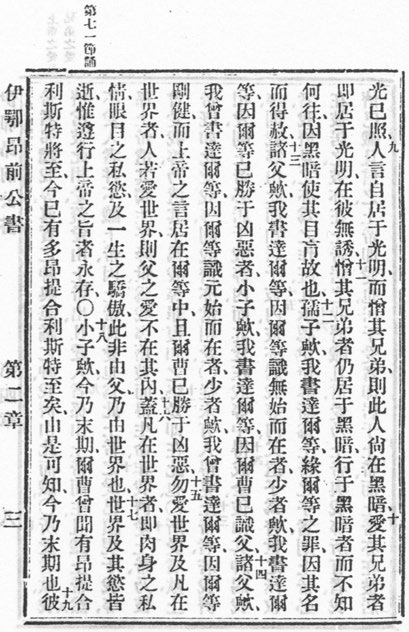 光已照、人言自居于光明、而憎其兄弟、則此人尙在黑暗、愛其兄弟者
九 十
即居于光明、在彼無誘、憎其兄弟者、仍居于黑暗、行于黑暗者、而不知
十一
何往、因黑暗使其目肓故也、孺子歟、我書達爾等、緣爾等之罪、因其名
十二
而得赦、諸父歟、我書達爾等、因爾等識無始而在者、少者歟、我書達爾
十三
等、因爾等已勝于凶惡者、小子歟、我書達爾等、因爾曹已識父、諸父歟、
十四
我曾書達爾等、因爾等識元始而在者、少者歟、我曾書達爾等、因爾等
剛健、而上帝之言居在爾等中、且爾曹已勝于凶惡、勿愛世界、及凡在
十五
世界者、人若愛世界、則父之愛不在其內、蓋凡在世界者、即肉身之私
十六
情、眼目之私慾、及一生之驕傲、此非由父、乃由世界也、世界及其慾皆
十七
逝、惟遵行上帝之旨者永存、○小子歟、今乃末期、爾曹曾聞有昂提合
十八
利斯特將至、今已有多昂提合利斯特至矣、由是可知今乃末期也、彼
十九
伊鄂昂前公書 第二章 三